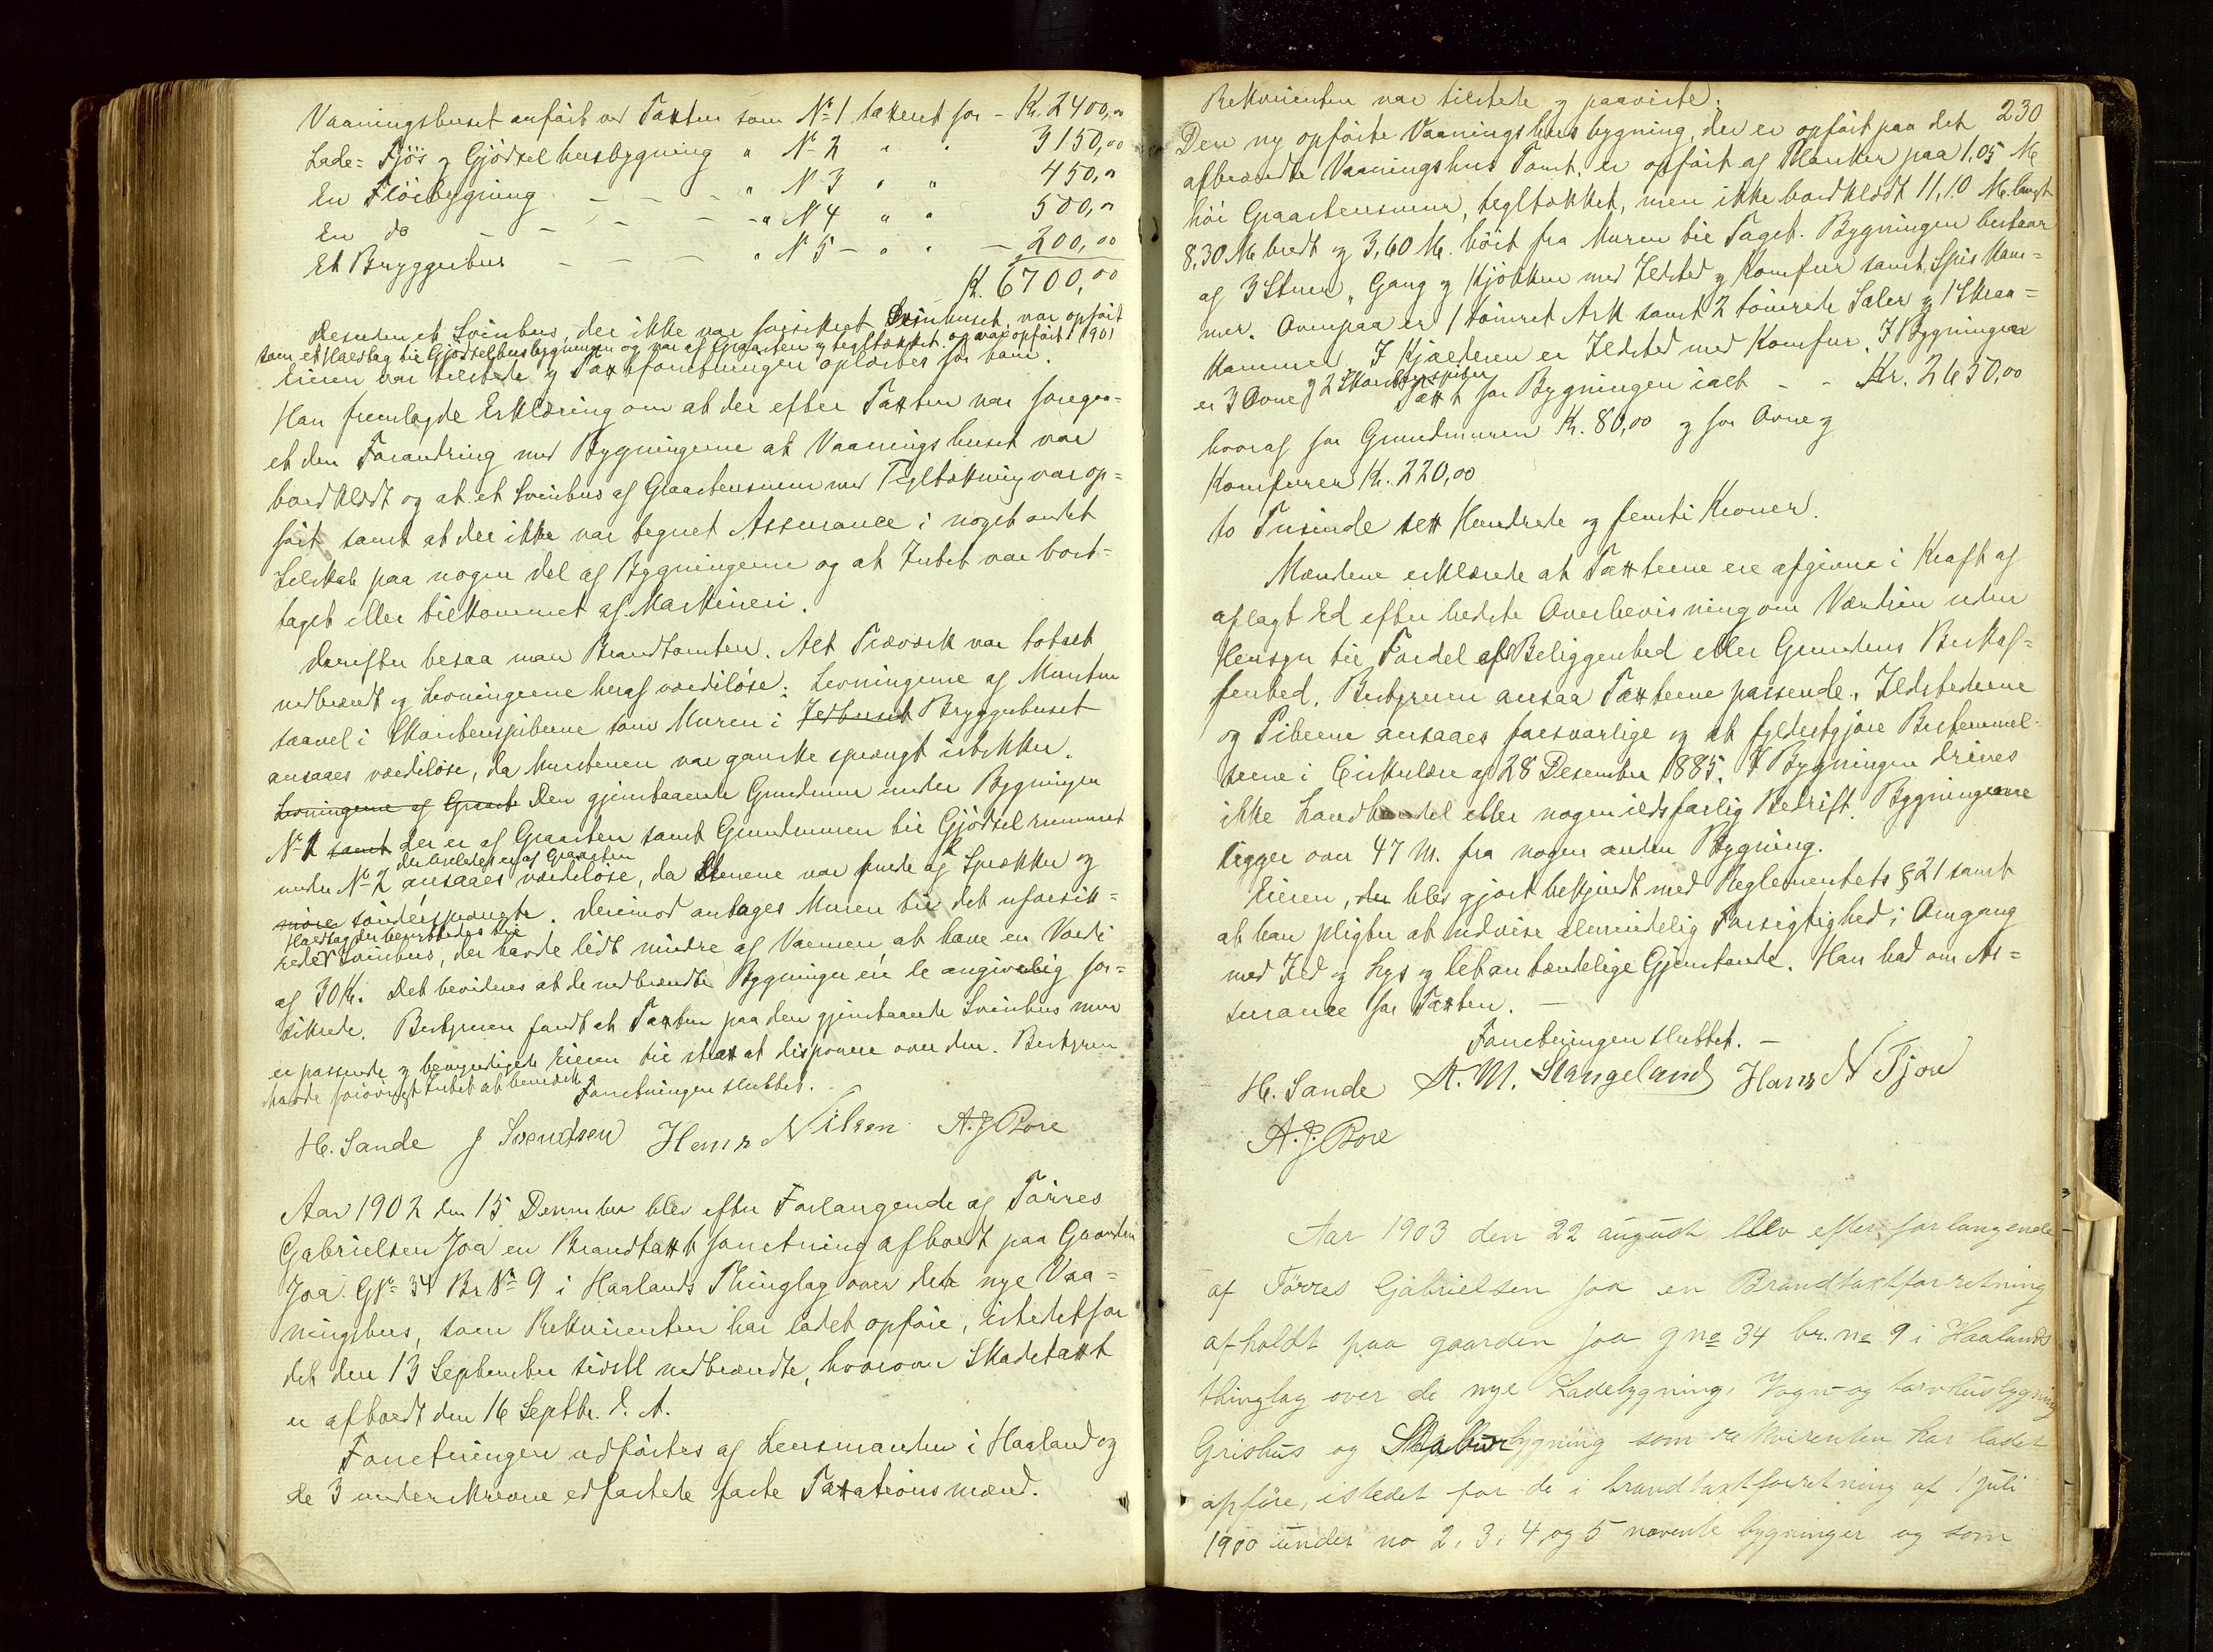 Vaaningshuset anført ved Taxten som No 1 taxeret for - Kr. 2400,00
Lade= Fjøs og Gjødselhusbygning " No 2 " " 3150,00
En Fløibygning - - - " No 3 " " 450,00
En do - - - - " No 4 " " 500,00
Et Bryggerhus - - - " No 5 - " " - 200,00
Kr. 6700,00
Desuden et Svinhus, der ikke var forsikret. Svinhuset var opført
som et Halvtag til Gjødselhusbygningen og var af Graasten og tegltækket og var opført 1901
Eieren var tilstede og Taxtforretningen oplæstes for ham.
Han fremlagde Erklæring om at der efter Taxten var foregaa=
et den Forandring med Bygningerne at Vaaningshuset var
bordklædt og at et Svinhus af Graastensmur med Tegltækning var op=
ført samt at der ikke var tegnet Assurance i noget andet
Selskab paa nogen del af Bygningerne og at Intet var bort=
taget eller tilkommet af Maskineri.
Derefter besaa man Brandtomten. Alt Træværk var totalt
nedbrændt og Levningerne heraf værdiløse. Levningerne af Mursten
saavel i Skorstenspiberne som Muren i Ildhuset Bryggehuset
ansaaes værdiløse, da Murstenen var ganske sprængt istykker.
Levningerne af Graast Den gjenstaaende Grundmur under Bygningen
No 1 samt der er af Graasten samt Grundmuren til Gjødselrummet
der ligeledes er af Graasten
under No 2 ansaaes værdiløse, da Stenene var fulde af Sprækker og
møre søndersprængte. Derimod antages Muren til det uforsik=
Halvtag der benyttedes til
rede Svinhus, der havde lidt mindre af Varmen at have en Værdi
af 30 Kr. Det bevidnes at de nedbrændte Bygninger ere le angivelig for=
sikrede. Bestyreren fandt at Taxten paa den gjenstaaende Svinhus mur
er passende og bemyndigede Eieren til strax at disponere over den. Bestyreren
havde forøvrigt Intet at bemærke. Forretningen sluttet.
H. Sande J Svendsen Hans Nilsen A. J Bore
Aar 1902 den 15 December blev efter Forlangende af Tørres
Gabrielsen Joa en Brandtaxtforretning afholdt paa Gaarden
Joa G No 34 Br No 9 i Haalands Thinglag over det nye Vaa=
ningshus, som Rekvirenten har ladet opføre, istedetfor
det den 13 September sidstl nedbrændte, hvorover Skadetaxt
er afholdt den 16 Septbr. d. A.
Forretningen udførtes af Lensmanden i Haaland og
de 3 underskrevne edfæstede faste Taxationsmænd.
230
Rekvirenten var tilstede og paaviste.
Den ny opførte Vaaningshusbygning, der er opført paa det
afbrændte Vaaningshus Tomt, er opført af Planker paa 1,05 M
høi Graastensmur, tegltækket, men ikke bordklædt 11,10 M. langt
8,30 M. bredt og 3,60 M. høit fra Muren til Taget. Bygningen bestaar
af 3 Stuer, Gang og Kjøkken med Ildsted og Komfur samt Spiskam=
mer. Ovenpaa er 1 tømret Ark samt 2 tømrede Saler og 1 Skraa=
kammer. I Kjælderen er Ildsted med Komfur. I Bygningen
er 3 Ovne og 2 Skorstenspiber Taxt for Bygningen ialt - - Kr. 2650,00
hvoraf for Grundmuren Kr. 80,00 og for Ovne og
Komfurer Kr. 220,00
to Tusinde sex Hundrede og femti Kroner.
Mændene erklærede at Taxterne ere afgivne i Kraft af
aflagt Ed efter bedste Overbevisning om Værdien uden
Hensyn til Fordel af Beliggenhed eller Grundens Beskaf=
fenhed. Bestyreren ansaa Taxterne passende. Ildstederne
og Piberne ansaaes forsvarlige og at fyldestgjøre Bestemmel=
serne i Cirkulære af 28 Desember 1885. I Bygningen drives
ikke Landhandel eller nogen ildsfarlig Bedrift. Bygningerne
ligger over 47 M. fra nogen anden Bygning.
Eieren, der blev gjort bekjendt med Reglementets § 21 samt
at han pligter at udvise almindelig Forsigtighed i Omgang
med Ild og Lys og let antændelige Gjenstande. Han bad om As=
surance for Taxten. -
Forretningen sluttet. -
H. Sande A. M. Stangeland Hans N Tjore
A. J. Bore
Aar 1903 den 22 august blev efter forlangende
af Tørres Gabrielsen Joa en Brandtaxtforretning
afholdt paa gaarden Joa g no 34 br. no 9 i Haalands
thinglag over de nye Ladebygning, Vogn- og tørvhusbygning
Grishus og Stabur bygning som rekvirenten har ladet
opføre, istedet for de i brandtaxtforretning af 1 juli
1900 under no 2, 3, 4, og 5 nævente bygninger og som